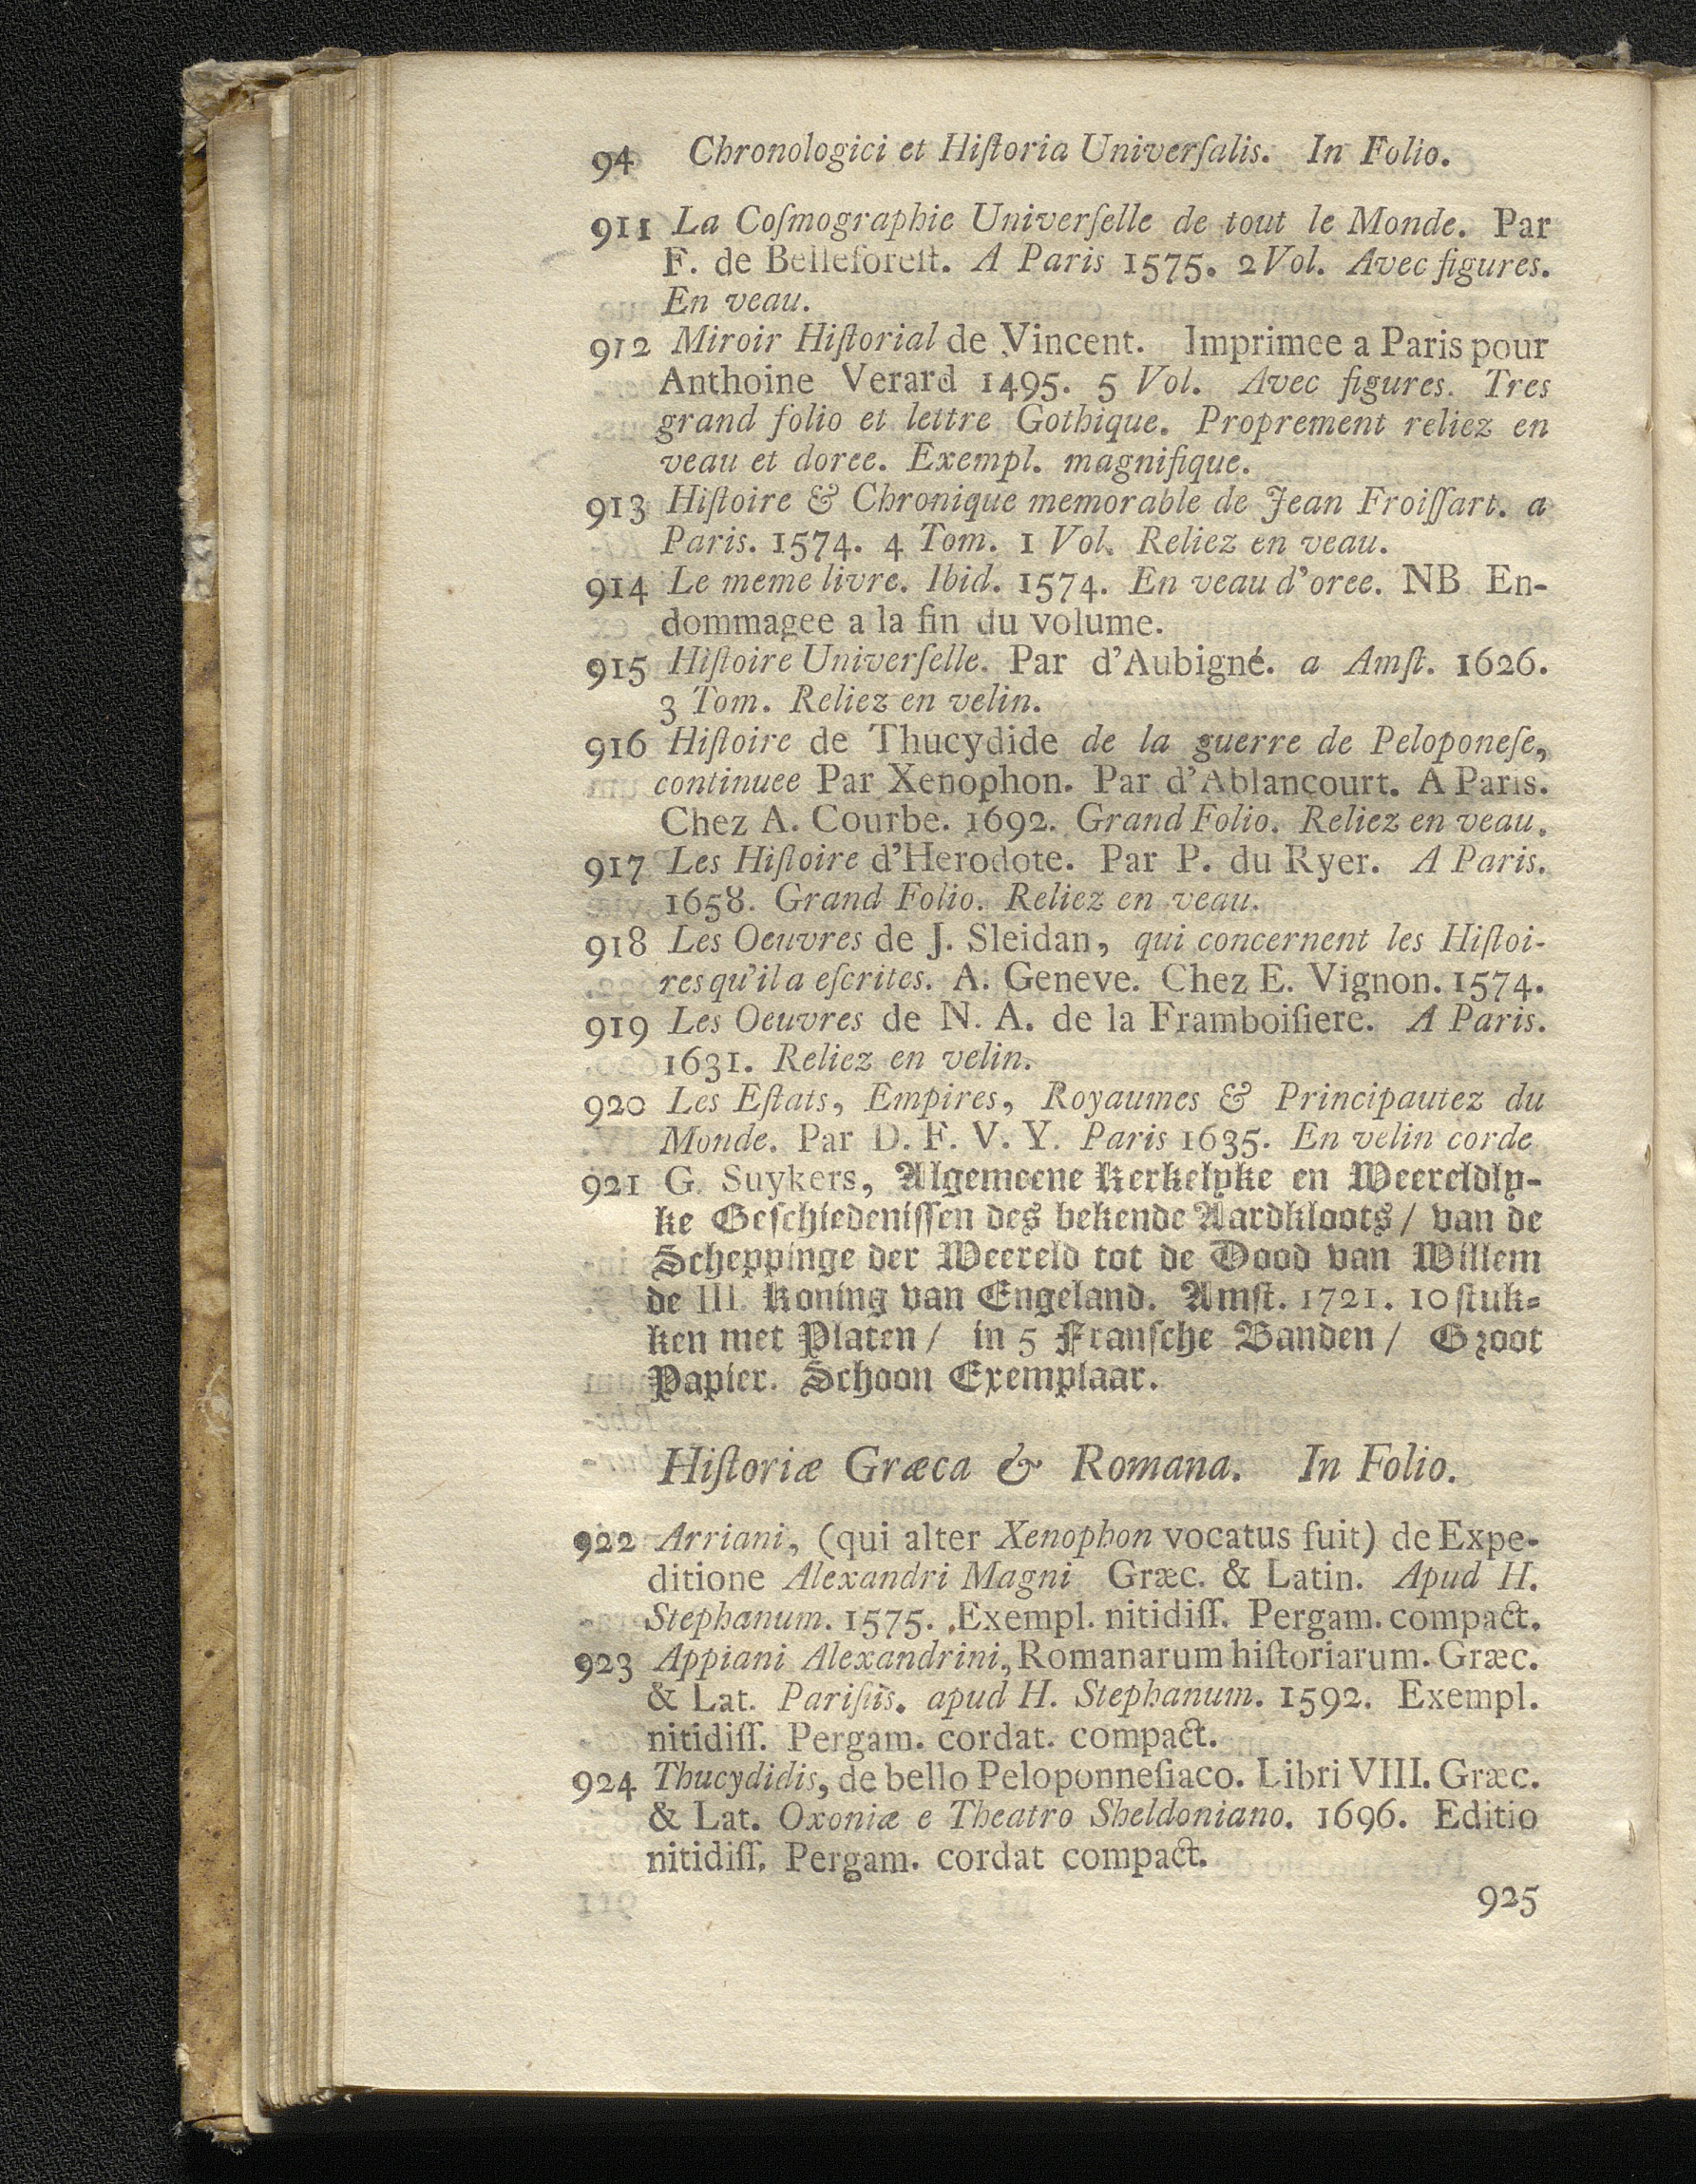 94 Chronologici et Hiſtoria Univerſalis. In Folio.
911 La Coſmographie Univerſelle de tout le Monde. Par
F. de Belleforeſt. A Paris 1575. 2 Vol. Avec figures.
En veau.
912 Miroir Hiſtorial de Vincent. Imprimee a Paris pour
Anthoine Verard 1495. 5 Vol. Avec figures. Tres
grand folio et lettre Gothique. Proprement reliez en
veau et doree. Exempl. magnifique.
913 Hiſtoire & Chronique memorable de Jean Froiſſart. a
Paris. 1574. 4 Tom. 1 Vol. Reliez en veau.
914 Le meme livre. Ibid. 1574. En veau d'oree. NB En-
dommagee a la fin du volume.
915 Hiſtoire Univerſelle. Par d'Aubigné. a Amſt. 1626.
3 Tom. Reliez en velin.
916 Hiſtoire de Thucydide de la guerre de Peloponeſe,
continuee Par Xenophon. Par d'Ablancourt. A Paris.
Chez A. Courbe. 1692. Grand Folio. Reliez en veau.
917 Les Hiſtoire d'Herodote. Par P. du Ryer. A Paris.
1658. Grand Folio. Reliez en veau.
918 Les Oeuvres de J. Sleidan, qui concernent les Hiſtoi-
res qu'il a eſcrites. A. Geneve. Chez E. Vignon. 1574.
919 Les Oeuvres de N. A. de la Framboiſiere. A Paris.
1631. Reliez en velin.
920 Les Eſtats, Empires, Royaumes & Principautez du
Monde. Par D. F. V. Y. Paris 1635. En velin corde
921 G. Suykers, Algemeene Kerkelyke en Weereldly-
ke Geſchiedeniſſen des bekende Aardkloots / van de
Scheppinge der Weereld tot de Dood van Willem
de III. Koning van Engeland. Amſt. 1721. 10 ſtuk-
ken met Platen / in 5 Franſche Banden / Groot
Papier. Schoon Exemplaar.
Hiſtoriæ Græca & Romana. In Folio.
922 Arriani, (qui alter Xenophon vocatus fuit) de Expe-
ditione Alexandri Magni Græc. & Latin. Apud H.
Stephanum. 1575. Exempl. nitidiſſ. Pergam. compact.
923 Appiani Alexandrini, Romanarum hiſtoriarum. Græc.
& Lat. Pariſiis. apud H. Stephanum. 1592. Exempl.
nitidiſſ. Pergam. cordat. compact.
924 Thucydidis, de bello Peloponneſiaco. Libri VIII. Græc.
& Lat. Oxoniæ e Theatro Sheldoniano. 1696. Editio
nitidiſſ. Pergam. cordat compact.
925